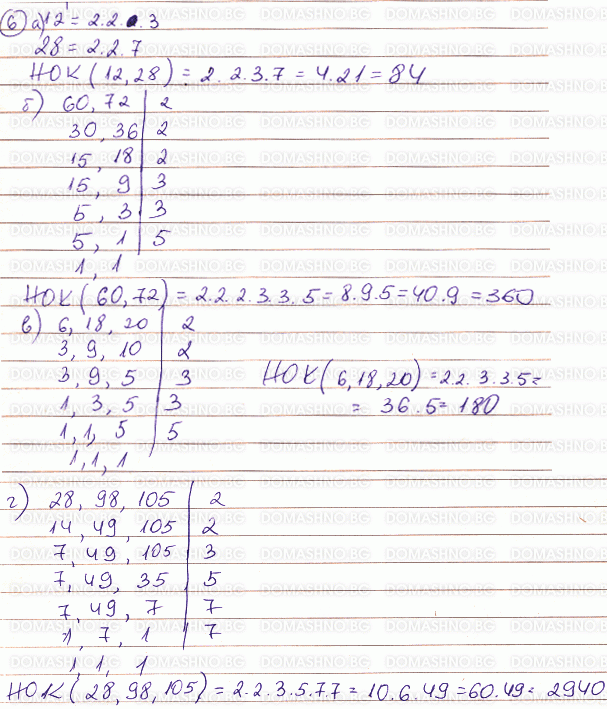 6 а) 12 = 2.2.3
28 = 2.2.7
НОК (12,28) = 2.2.3.7 = 4.21 = 84
б) 60, 72 | 2
30, 36 | 2
15, 18 | 2
15, 9 | 3
5, 3 | 3
5, 1 | 5
1, 1
НОК (60,72) = 2.2.2.3.3.5 = 8.9.5 = 40.9 = 360
в) 6, 18, 20 | 2
3, 9, 10 | 2
3, 9, 5 | 3
1, 3, 5 | 3
1, 1, 5 | 5
1, 1, 1
НОК (6,18,20) = 2.2.3.3.5 =
= 36.5 = 180
г) 28, 98, 105 | 2
14, 49, 105 | 2
7, 49, 105 | 3
7, 49, 35 | 5
7, 49, 7 | 7
1, 7, 1 | 7
1, 1, 1
НОК (28, 98, 105) = 2.2.3.5.7.7 = 10.6.49 = 60.49 = 2940
DOMASHNO.BG